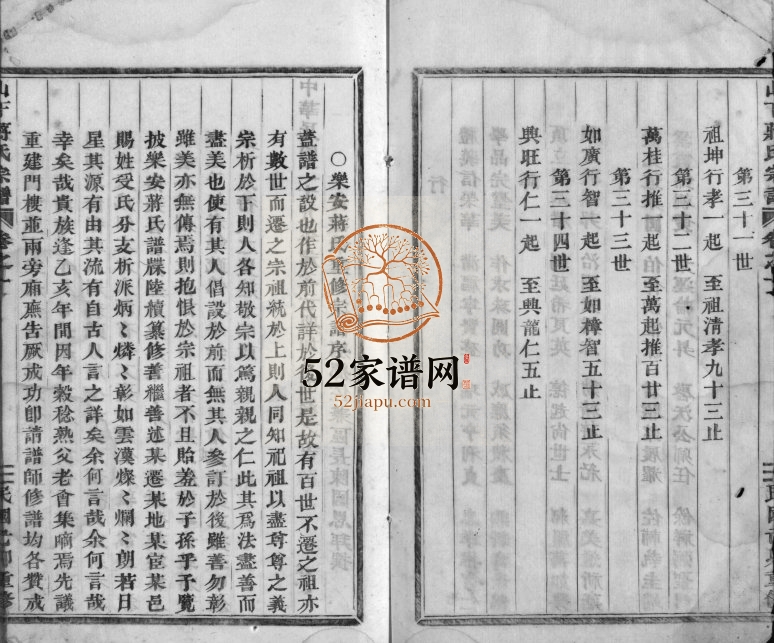 第三十一世
祖坤行孝一起 至祖清孝九十三止
第三十二世
萬桂行推一起 至萬起推百廿三止
第三十三世
如廣行智一起 至如樟智五十三止
第三十四世
興旺行仁一起 至興龍仁五止
山下蔣氏宗譜
民國 重修
○樂安蔣氏重修宗譜序
蓋譜之設也作於前代詳於 世是故有百世不遷之祖亦
有數世而遷之宗祖統於上則人同知祀祖以盡尊尊之義
宗析於下則人各知敬宗以篤親親之仁此其爲法盡善而
盡美也使有其人倡設於前而無其人參訂於後雖善勿彰
雖美亦無傳焉則抱恨於宗祖者不且貽羞於子孫乎予覽
披樂安蔣氏譜牒陸續纂修善繼善述某遷某地某宦某邑
賜姓受氏分支析派炳〻燐〻彰如雲漢燦〻爛〻朗若日
星其源有由其流有自古人言之詳矣余何言哉余何言哉
幸矣哉貴族逢乙亥年間因年穀稔熟父老會集嘀焉先議
重建門樓並兩旁廂廡告厥成功卽請譜師修譜均各贊成
山下蔣氏宗譜
民國 重修
52家谱网
52jiapu.com